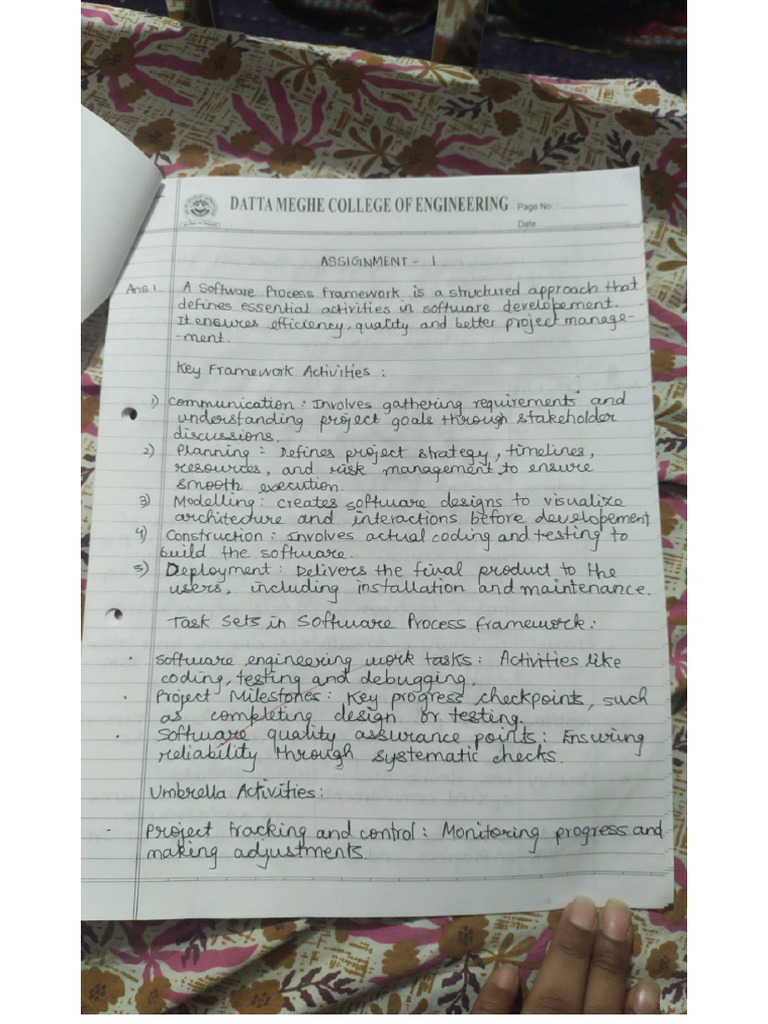 DATTA MEGHE COLLEGE OF ENGINEERING
Page No. :
Date
ASSIGNMENT - 1
Ans 1. A Software Process Framework is a structured approach that
defines essential activities in software developement.
It ensures efficiency, quality and better project manage-
-ment.
Key Framework Activities :
1) Communication : Involves gathering requirements and
understanding project goals through stakeholder
discussions.
2) Planning : Defines project strategy, timelines,
resources, and risk management to ensure
smooth execution.
3) Modelling : creates software designs to visualize
architecture and interactions before developement
4) Construction : Involves actual coding and testing to
build the software.
5) Deployment : Delivers the final product to the
users, including installation and maintenance.
Task Sets in Software Process framework :
• Software engineering work tasks : Activities like
coding, testing and debugging.
• Project Milestones : Key progress checkpoints, such
as completing design or testing.
• Software quality assurance points : Ensuring
reliability through systematic checks.
Umbrella Activities :
• Project tracking and control : Monitoring progress and
making adjustments.